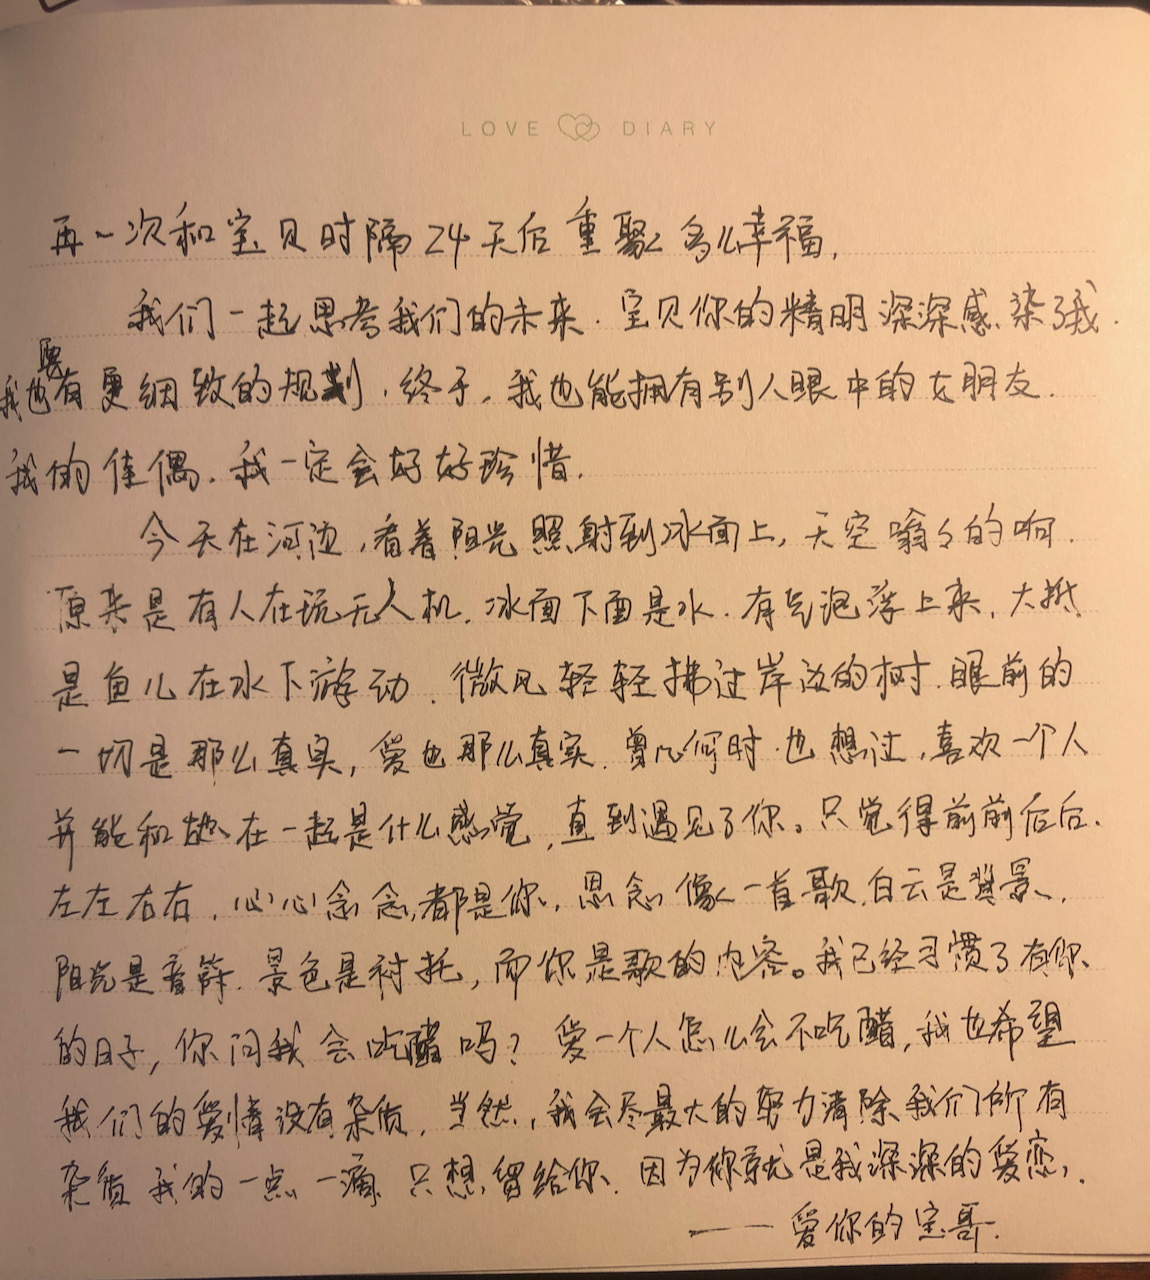 LOVE DIARY
再一次和宝贝时隔24天后重聚多么幸福,
我们一起思考我们的未来.宝贝你的精明深深感染了我.
我也要有更细致的规划.终于,我也能拥有别人眼中的女朋友.
我的佳偶.我一定会好好珍惜.
今天在河边,看着阳光照射到冰面上,天空嗡々的响.
原来是有人在玩无人机.冰面下面是水.有气泡浮上来,大抵
是鱼儿在水下游动.微风轻轻拂过岸边的树.眼前的
一切是那么真实,爱也那么真实.曾几何时也想过,喜欢一个人
并能和她在一起是什么感觉,直到遇见了你。只觉得前前后后.
左左右右,心心念念,都是你,思念像一首歌,白云是背景,
阳光是音符.景色是衬托,而你是歌的内容。我已经习惯了有你
的日子,你问我会吃醋吗?爱一个人怎么会不吃醋,我也希望
我们的爱情没有杂质.当然,我会尽最大的努力清除我们所有
杂质 我的一点一滴 只想留给你.因为你就是我深深的爱恋,.
——爱你的宝哥.